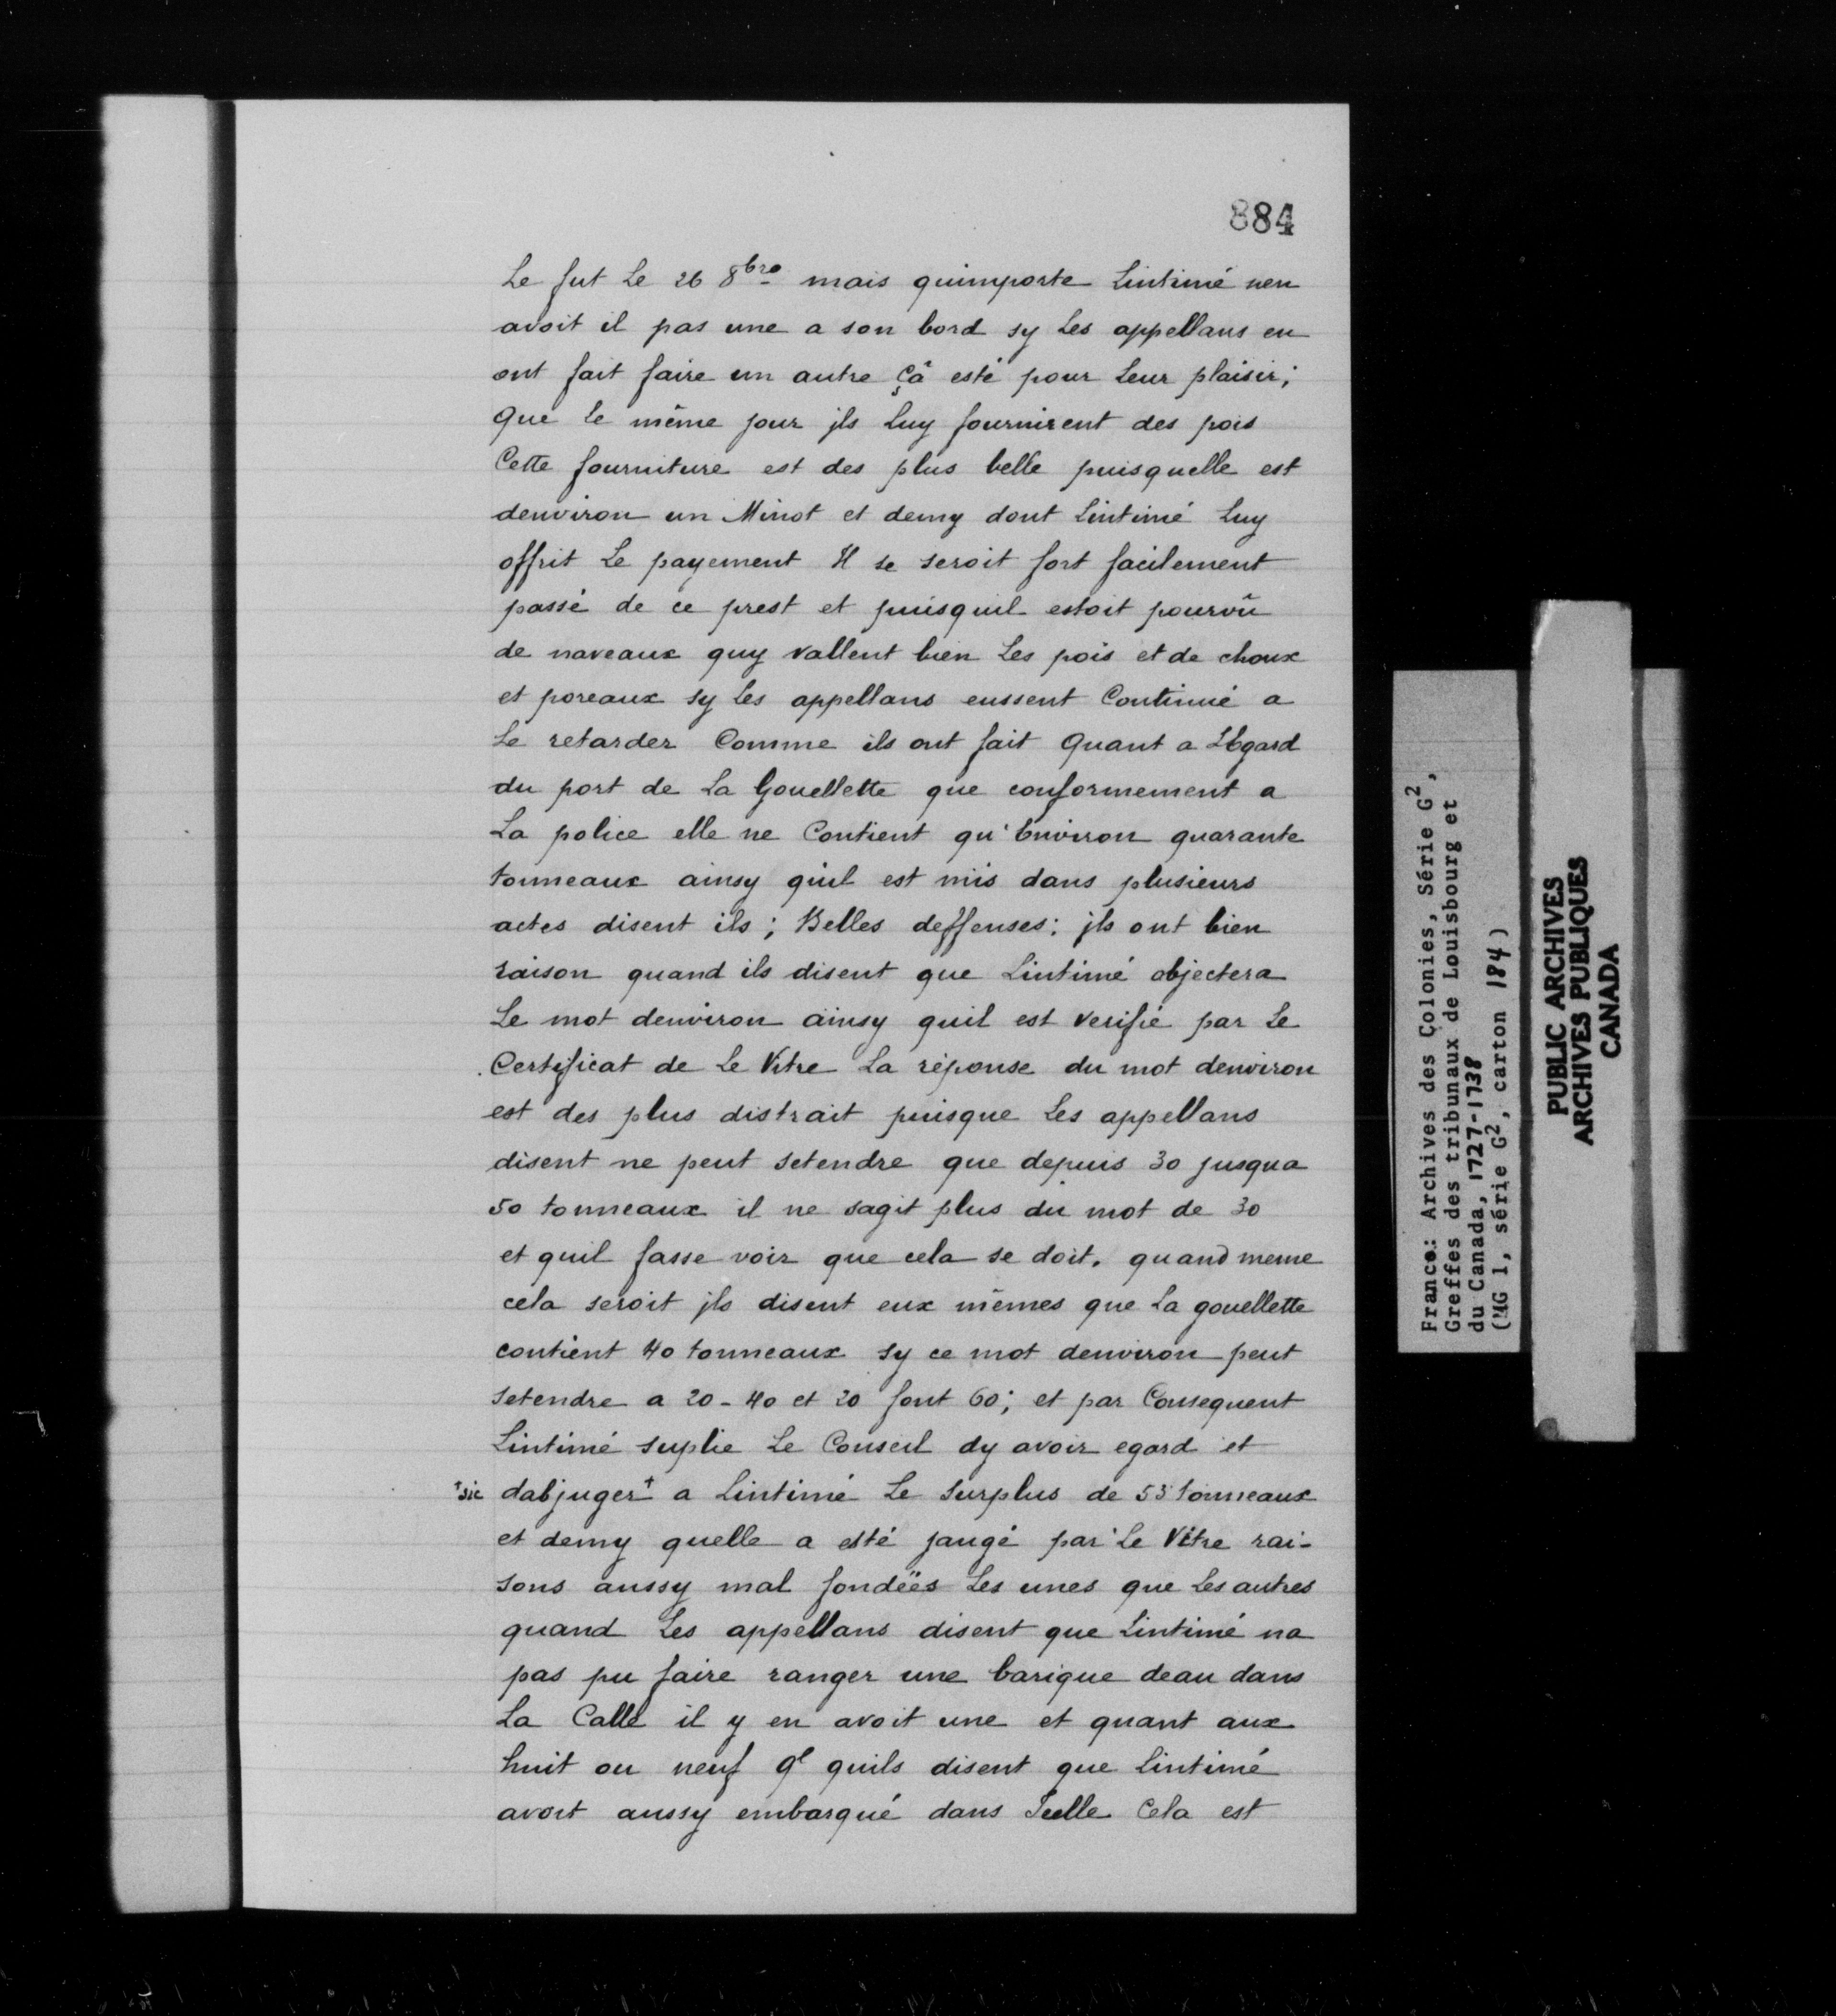 884
Le fut Le 26 8bre mais quimporte Lintimé nen
avoit il pas une a son bord sy Les appellans en
ont fait faire un autre çâ esté pour Leur plaisir;
Que le même jour jls Luy fournirent des pois
Cette fourniture est des plus belle puisquelle est
denviron un Minot et demy dont Lintimé Luy
offrit Le payement Il se seroit fort facilement
passé de ce prest et puisquil estoit pourvû
de naveaux quy vallent bien Les pois et de choux
et poreaux sy Les appellans eussent Continué a
Le retarder Comme ils ont fait Quant a LEgard
du port de La Gouellette que conformement a
La police elle ne Contient qu'Environ quarante
tonneaux ainsy quil est mis dans plusieurs
actes disent ils; Belles deffenses; jls ont bien
raison quand ils disent que Lintimé objectera
Le mot denviron ainsy quil est verifié par Le
Certificat de Le Vitre La réponse du mot denviron
est des plus distrait puisque Les appellans
disent ne peut setendre que depuis 30 jusqua
50 tonneaux il ne sagit plus du mot de 30
et quil fasse voir que cela se doit. quand meme
cela seroit jls disent eux mêmes que La gouellette
contient 40 tonneaux sy ce mot denviron peut
setendre a 20 - 40 et 20 font 60; et par Consequent
Lintimé suplie Le Conseil dy avoir egard et
†sic dabjuger† a Lintimé Le Surplus de 53 tonneaux
et demy quelle a esté jaugé par Le Vitre rai-
sons aussy mal fondëes Les unes que Les autres
quand Les appellans disent que Lintimé na
pas pu faire ranger une barique deau dans
La Calle il y en avoit une et quant aux
huit ou neuf ql quils disent que Lintimé
avoit aussy embarqué dans Icelle Cela est
France: Archives des Colonies, Série G2,
Greffes des tribunaux de Louisbourg et
du Canada, 1727-1738
(MG 1, série G2, carton 184)
PUBLIC ARCHIVES
ARCHIVES PUBLIQUES
CANADA